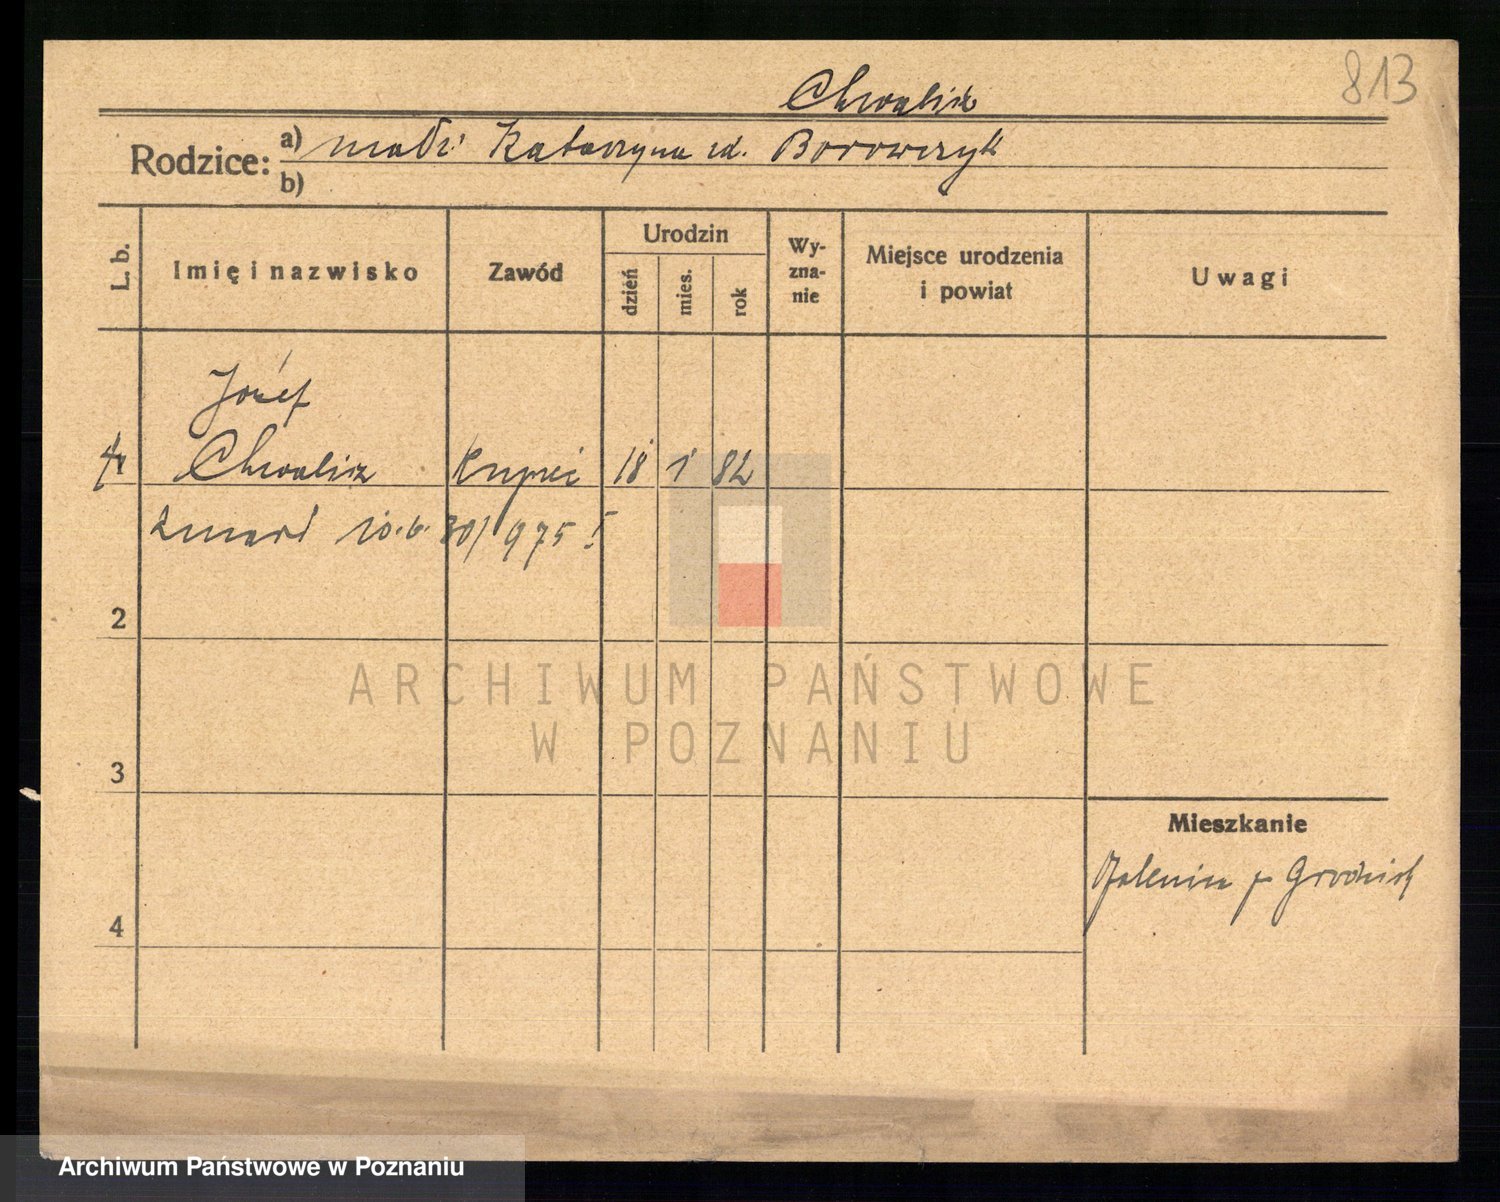 813
Chwalisz
Rodzice: a) małż. Katarzyna zd. Borowczyk
b)
L. b.
Imię i nazwisko
Zawód
Urodzin
dzień
mies.
rok
Wy-
zna-
nie
Miejsce urodzenia
i powiat
Uwagi
Józef
Chwalisz Kupiec 18 1 82
zmarł 10.6.30/975
2
3
4
Mieszkanie
Grodzisk
ARCHIWUM PAŃSTWOWE
W POZNANIU
Archiwum Państwowe w Poznaniu